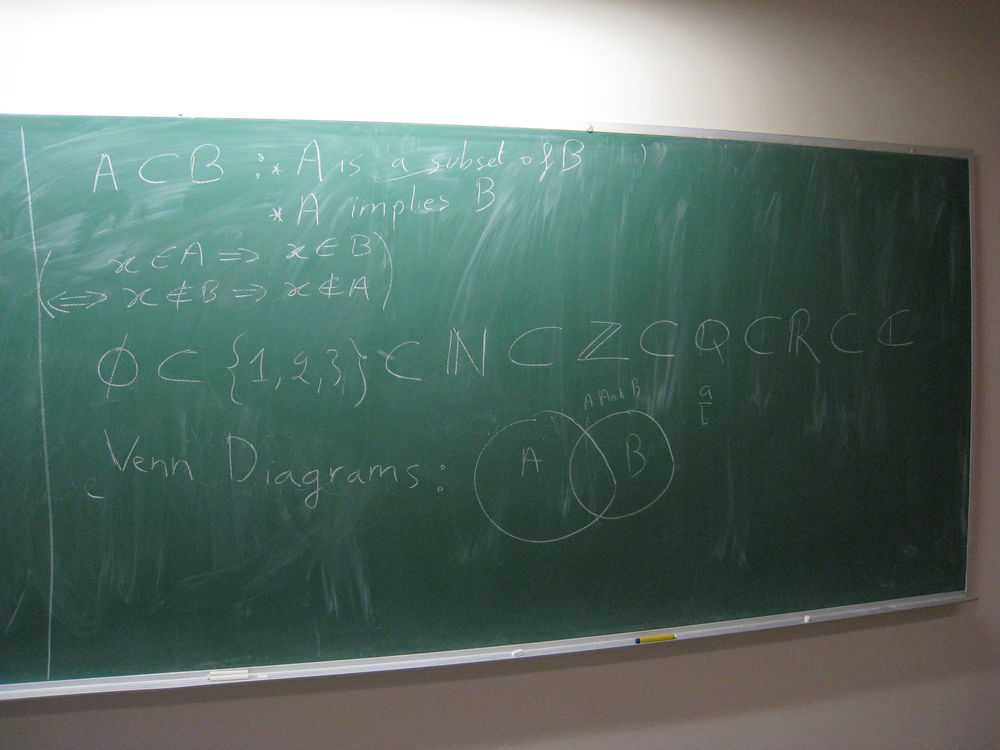 A ⊂ B : * A is a subset of B
* A implies B
( x ∈ A ⇒ x ∈ B
⇔ x ∉ B ⇒ x ∉ A )
∅ ⊂ {1,2,3} ⊂ ℕ ⊂ ℤ ⊂ ℚ ⊂ ℝ ⊂ ℂ
a
Venn Diagrams:
A And B
A
B